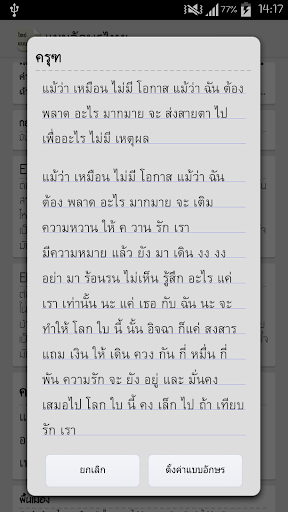 77% 14:17
ครุฑ
แม้ว่า เหมือน ไม่มี โอกาส แม้ว่า ฉัน ต้อง
พลาด อะไร มากมาย จะ ส่งสายตา ไป
เพื่ออะไร ไม่มี เหตุผล
แม้ว่า เหมือน ไม่มี โอกาส แม้ว่า ฉัน
ต้อง พลาด อะไร มากมาย จะ เติม
ความหวาน ให้ ค วาน รัก เรา
มีความหมาย แล้ว ยัง มา เดิน งง งง
อย่า มา ร้อนรน ไม่เห็น รู้สึก อะไร แค่
เรา เท่านั้น นะ แค่ เธอ กับ ฉัน นะ จะ
ทำให้ โลก ใบ นี้ นั้น อิจฉา ก็แค่ สงสาร
แถม เงิน ให้ เดิน ควง กัน กี่ หมื่น กี่
พัน ความรัก จะ ยัง อยู่ และ มั่นคง
เสมอไป โลก ใบ นี้ คง เล็ก ไป ถ้า เทียบ
รัก เรา
ยกเลิก
ตั้งค่าแบบอักษร
พื้นเมือง